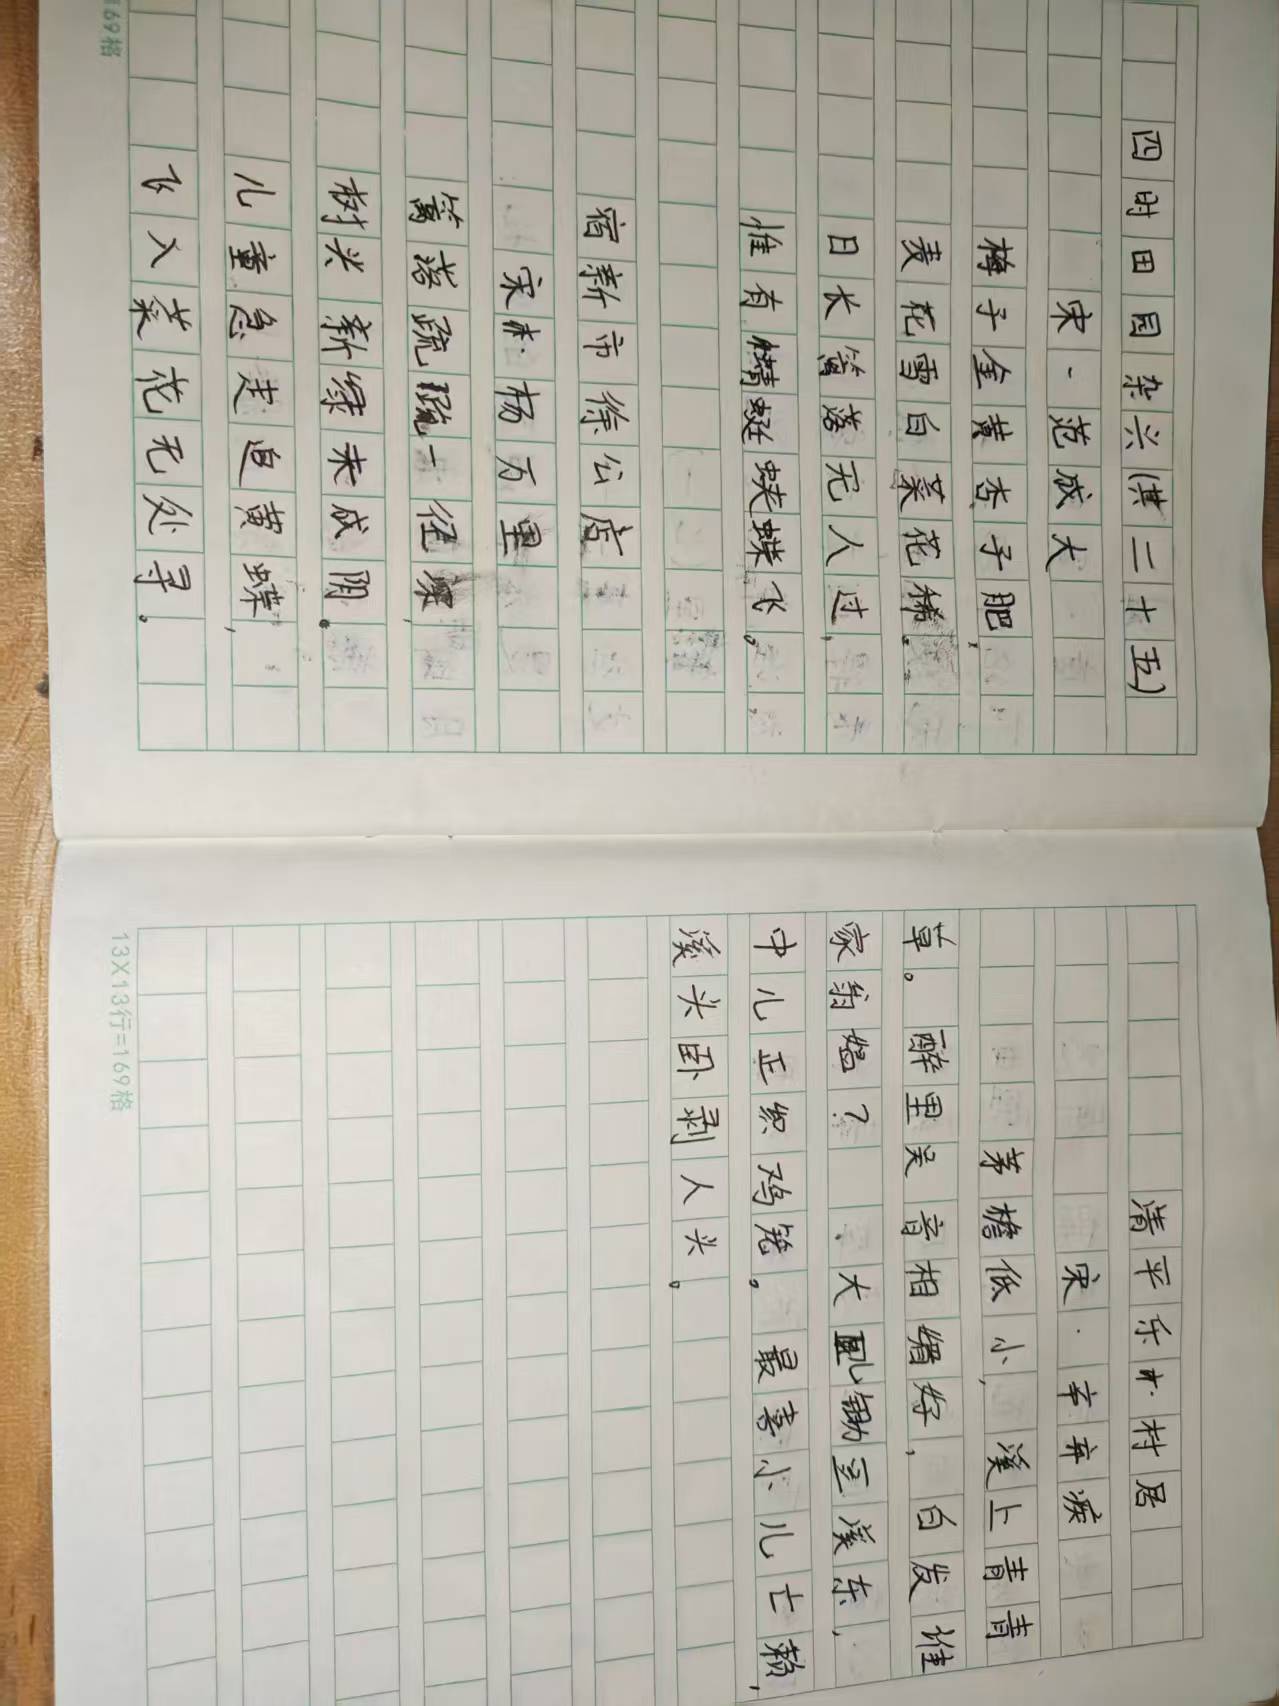 四时田园杂兴(其二十五)
宋·范成大
梅子金黄杏子肥,
麦花雪白菜花稀。
日长篱落无人过,
惟有蜻蜓蛱蝶飞。
宿新市徐公店
宋·杨万里
篱落疏疏一径深,
树头新绿未成阴。
儿童急走追黄蝶,
飞入菜花无处寻。
169格
清平乐·村居
宋·辛弃疾
茅檐低小,溪上青青
草。醉里吴音相媚好,白发谁
家翁媪?大儿锄豆溪东,
中儿正织鸡笼。最喜小儿亡赖,
溪头卧剥人头。
13X13行=169格